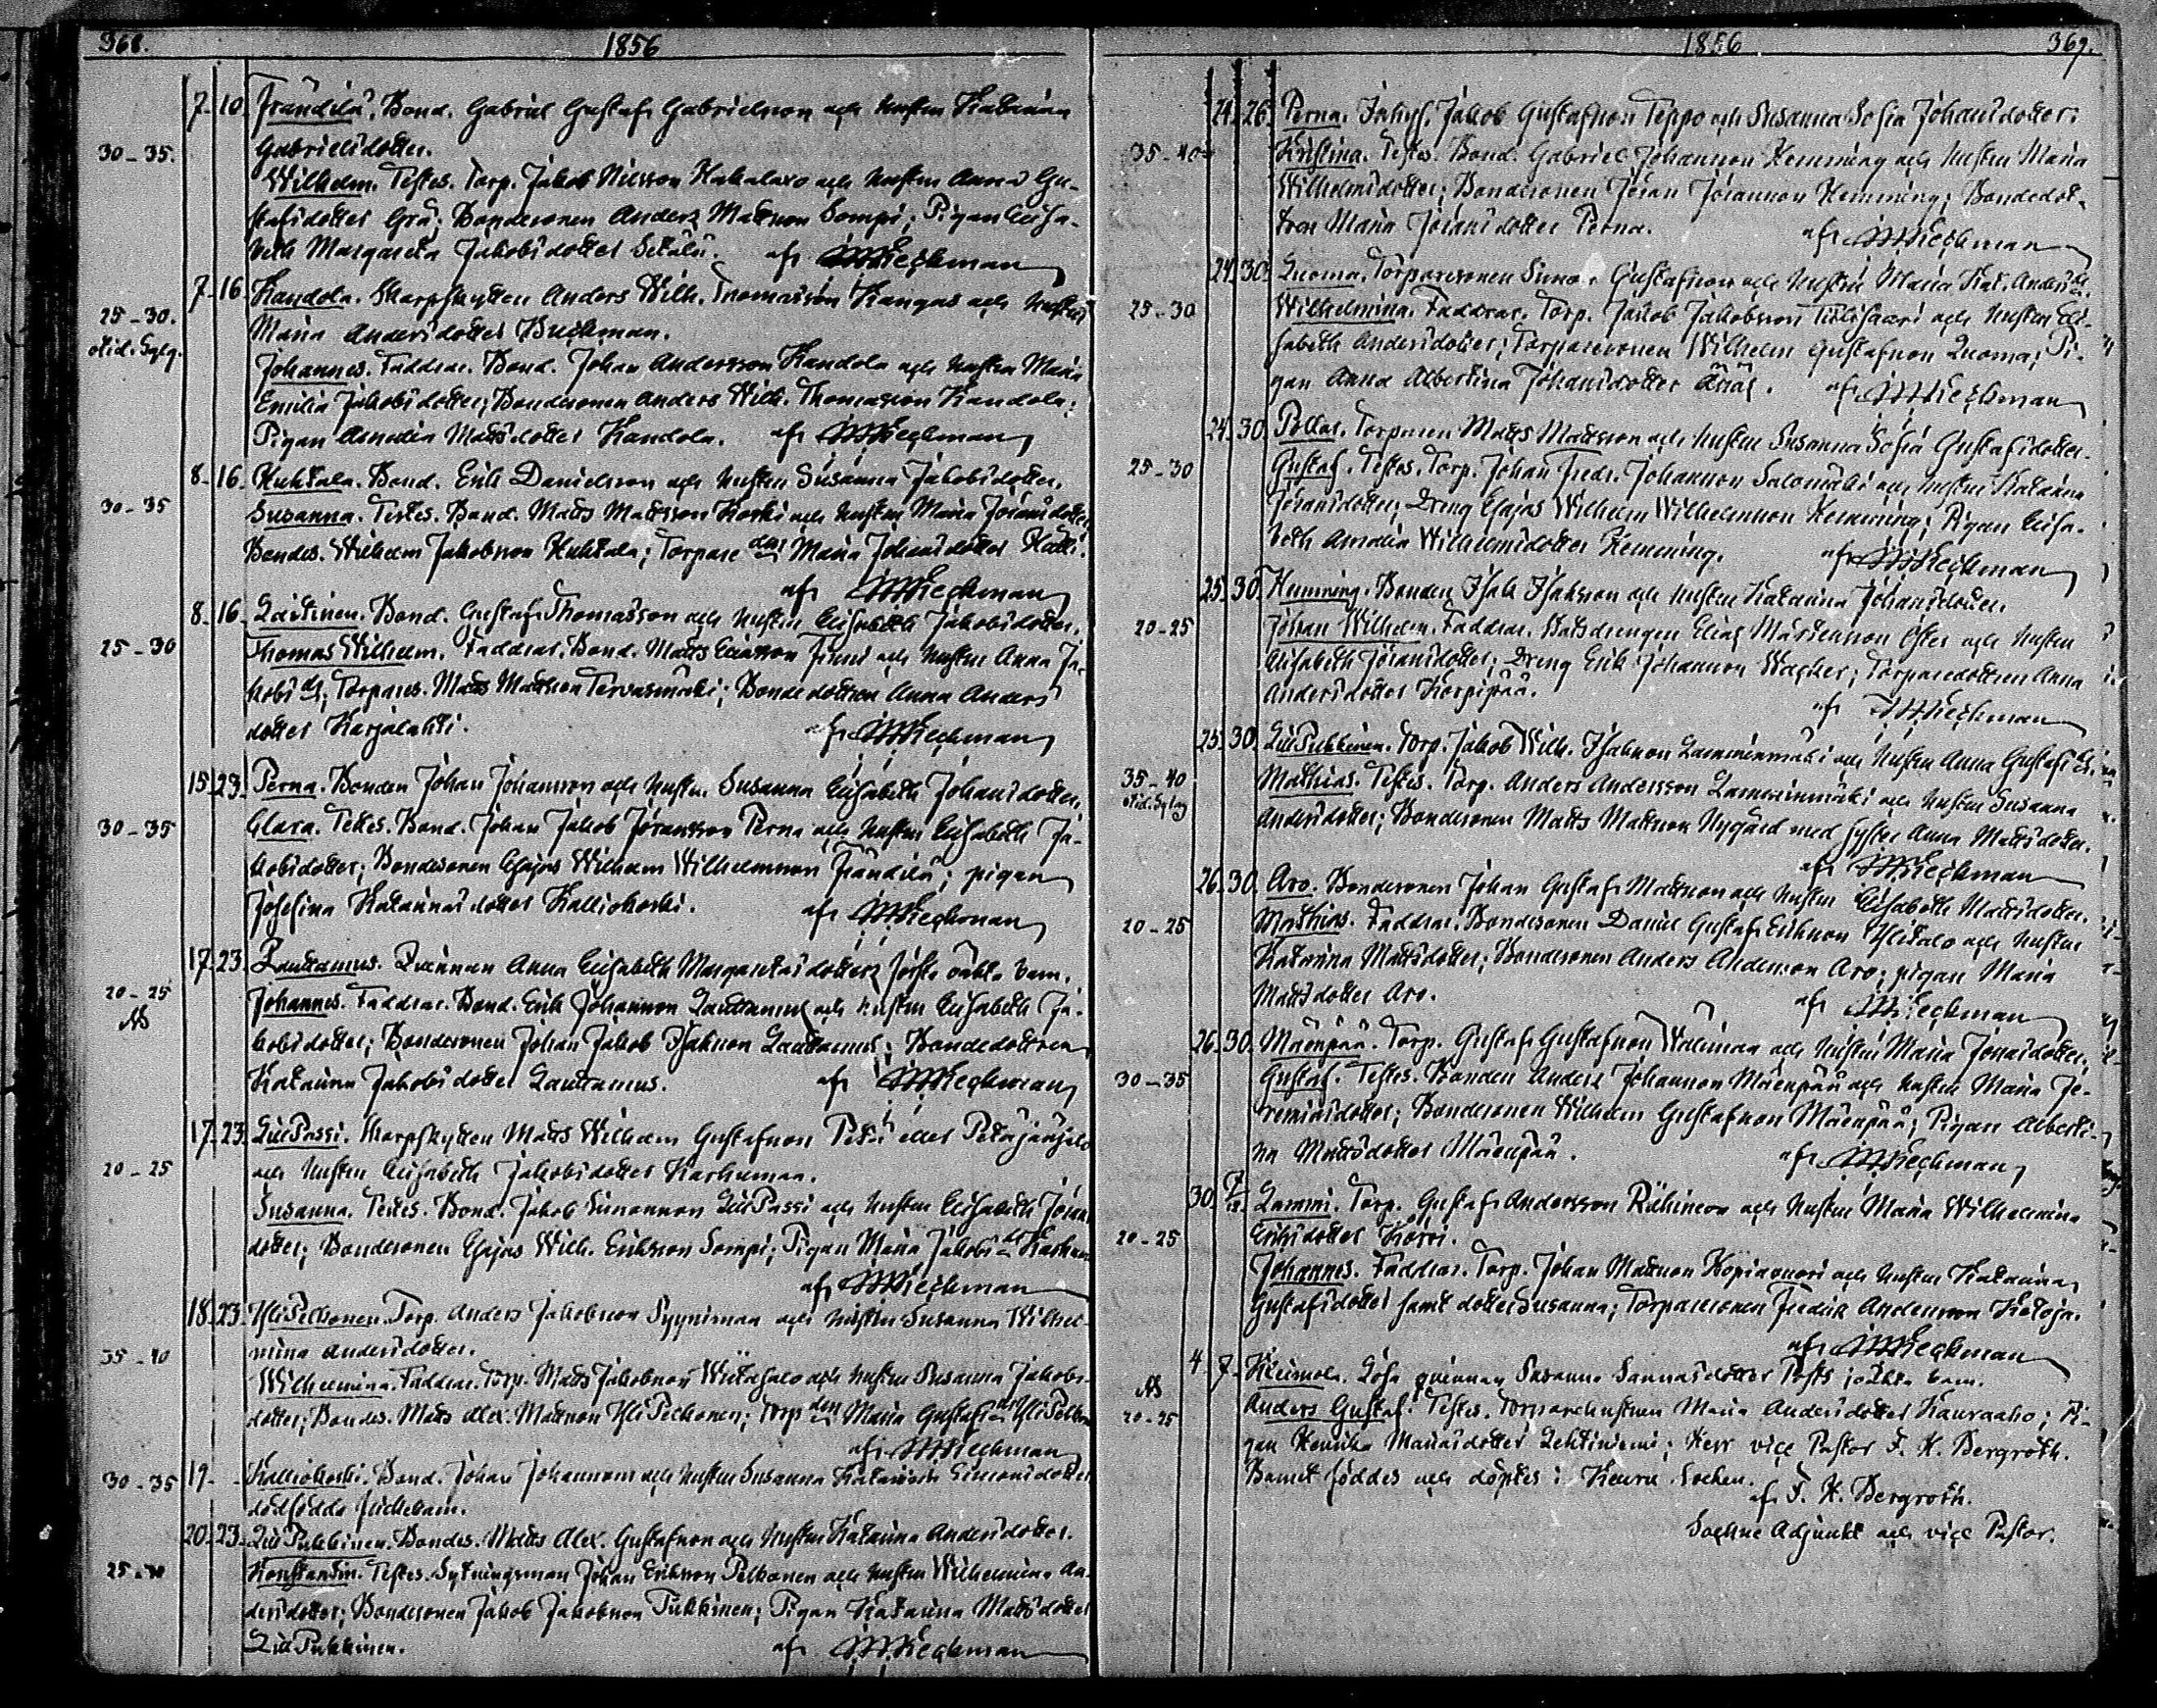 368. 1856
7. 10. Frändilä. Bond. Gabriel Gustaf Gabrielsson och hustru Katarina
30-35. Gabrielsdotter.
Wilhelm. Testes. Torp. Jakob Nilsson Hakalaxo och hustru Anna Gu-
stafsdotter Grå; Bondesonen Anders Mattsson Sompi; Pigan Elisa-
beth Margareta Jakobsdotter Setälä. af
7. 16. Kandola. Skarpskytten Anders Wilh. Thomasson Kangas och hustru
25-30. Maria Andersdotter Brickman.
Johannes. Faddrar. Bond. Johan Andersson Kandola och hustru Maria
Emilia Jakobsdotter; Bondesonen Anders Wilh. Thomasson Kandola;
Pigan Amalia Mattsdotter Kandola. af
8. 16. Huhtala. Bond. Erik Danielsson och hustru Susanna Jakobsdotter.
30-35 Susanna. Testes. Bond. Matts Mattsson Koski och hustru Maria Jöransdotter
Bondes. Wilhelm Jakobsson Huhtala; Torpare dr Maria Johansdotter
af
8. 16. Laitinen. Bond. Gustaf Thomasson och hustru Elisabeth Jakobsdotter.
25-30 Thomas Wilhelm. Faddrar. Bond. Matts Eliasson och hustru Anna Ja-
kobs dr; Torpares. Matts Mattsson Tervasmäki; Bondedottren Anna Anders
dotter Karjalahti. af
15. 23. Perna. Bonden Johan Johansson och hustru Susanna Elisabeth Johansdotter.
30-35 Clara. Testes. Bond. Johan Jakob Jöransson Perna och hustru Elisabeth Ja-
kobsdotter; Bondesonen Esajas Wilhelm Wilhelmsson Frändilä; pigan
Josefina Katarinasdotter Kalliokoski. af
17. 23. Lauttamus. Qvinnan Anna Elisabeth Margaretasdotters första oäkta barn.
20-25 Johannes. Faddrar. Bond. Erik Johansson Lauttamus och hustru Elisabeth Ja-
kobsdotter; Bondesonen Johan Jakob Isaksson Lauttamus; Bondedottren
Katarina Jakobsdotter Lauttamus. af
17. 23. Lill Passi. Skarpskytten Matts Wilhelm Gustafsson eller
20-25 och hustru Elisabeth Jakobsdotter Karhumaa.
Susanna. Testes. Bond. Jakob Simonsson Lill Passi och hustru Elisabeth Jörans
dotter; Bondesonen Esajas Wilh. Eriksson Sompi; Pigan Maria Jakobs dr
af
18. 23. Yli Pelkonen. Torp. Anders Jakobsson Syynimaa och hustru Susanna Wilhel-
mina Andersdotter.
35-40 Wilhelmina. Faddrar. Torp. Matts Jakobsson och hustru Susanna Jakobs-
dotter; Bondes. Matts Alex. Mattsson Yli Pelkonen; Torp. Maria Gustafs dr Yli Pelkonen
af
30-35 19. Kalliokoski. Bond. Johan Johansson och hustru Susanna Katarina Simonsdotters
dödfödda flickebarn.
20. 23. Lill Pukkinen. Bondes. Matts Alex. Gustafsson och hustru Katarina Andersdotter.
Konstantin. Testes. Sytningsman Johan Eriksson Pelkonen och hustru Wilhelmina An-
dersdotter; Bondesonen Jakob Jakobsson Pukkinen; Pigan Katarina Mattsdotter
Lill Pukkinen. af
1856 369.
24. 26. Perna. Inhys. Jakob Gustafsson Teppo och Susanna Sofia Johansdotter.
35-40 Kristina. Testes. Bond. Gabriel Johansson Hemming och hustru Maria
Wilhelmsdotter; Bondesonen Jöran Jöransson Hemming; Bondedot-
tren Maria Jöransdotter Perna. af
24. 30. Luoma. Torparesonen Gustafsson och hustru Maria Kat. Anders dr.
25-30 Wilhelmina. Faddrar. Torp. Jakob Jakobsson Tulisaari och hustru Eli-
sabeth Andersdotter; Torparesonen Wilhelm Gustafsson Luoma; Pi-
gan Anna Albertina Johansdotter af
24. 30. Pollar. Torparen Matts Mattsson och hustru Susanna Sofia Gustafsdotter.
25-30 Gustaf. Testes. Torp. Johan Fredr. Johansson Salomäki och hustru Katarina
Jöransdotter; Dreng Esajas Wilhelm Wilhelmsson Hemming; Pigan Elisa-
beth Amalia Wilhelmsdotter Hemming. af
25. 30. Hemming. Bonden Isak Isaksson och hustru Katarina Johansdotter.
20-25 Johan Wilhelm. Faddrar. Elias Mårtensson och hustru
Elisabeth Jöransdotter; Dreng Erik Johansson Wacker; Torparedottren Anna
Andersdotter Korpipää. af
25. 30. Lill Pukkinen. Torp. Jakob Wilh. Isaksson Lamminmäki och hustru Anna Gustafs dr.
35-40 Matthias. Testes. Torp. Anders Andersson Lamminmäki och hustru Susanna
Andersdotter; Bondesonen Matts Mattsson Nygård med syster Anna Mattsdotter.
af
26. 30. Aro. Bondesonen Johan Gustaf Mattsson och hustru Elisabeth Mattsdotter.
20-25 Matthias. Faddrar. Bondesonen Daniel Gustaf Eriksson Ylitalo och hustru
Katarina Mattsdotter; Bondesonen Anders Andersson Aro; pigan Maria
Mattsdotter Aro. af
26. 30. Mäenpää. Torp. Gustaf Gustafsson Wälimaa och hustru Maria Jonasdotter.
30-35 Gustaf. Testes. Bonden Anders Johansson Mäenpää och hustru Maria Je-
remiasdotter; Bondesonen Wilhelm Gustafsson Mäenpää; Pigan Alberti-
na Mattsdotter Mäenpää. af
30. Lammi. Torp. Gustaf Andersson Riihimaa och hustru Maria Wilhelmina
20-25 Eriksdotter
Johannes. Faddrar. Torp. Johan Mattsson och hustru Katarina
Gustafsdotter samt dotter Susanna; Torparesonen Fredrik Andersson Katoja.
af
4. 7. Heimola. Lösa quinnan Susanna Sannasdotter oäkta barn.
20-25 Anders Gustaf. Testes. Torparehustrun Maria Andersdotter Kauraaho; Pi-
gan Henrika Mariasdotter Lehtiniemi; Herr vice Pastor F. H. Bergroth.
Barnet föddes och döptes i Keuru Socken.
af F. H. Bergroth.
Sockne Adjunkt och vice Pastor.